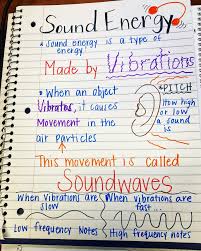 Sound Energy
• Sound energy is a type of
energy
Made by Vibrations
• When an object
Vibrates, it causes
Movement in the
air particles
*PITCH
How high
or low
a sound
is
This movement is called
Soundwaves
When vibrations are
slow
When vibrations are
fast
Low frequency notes
High frequency notes